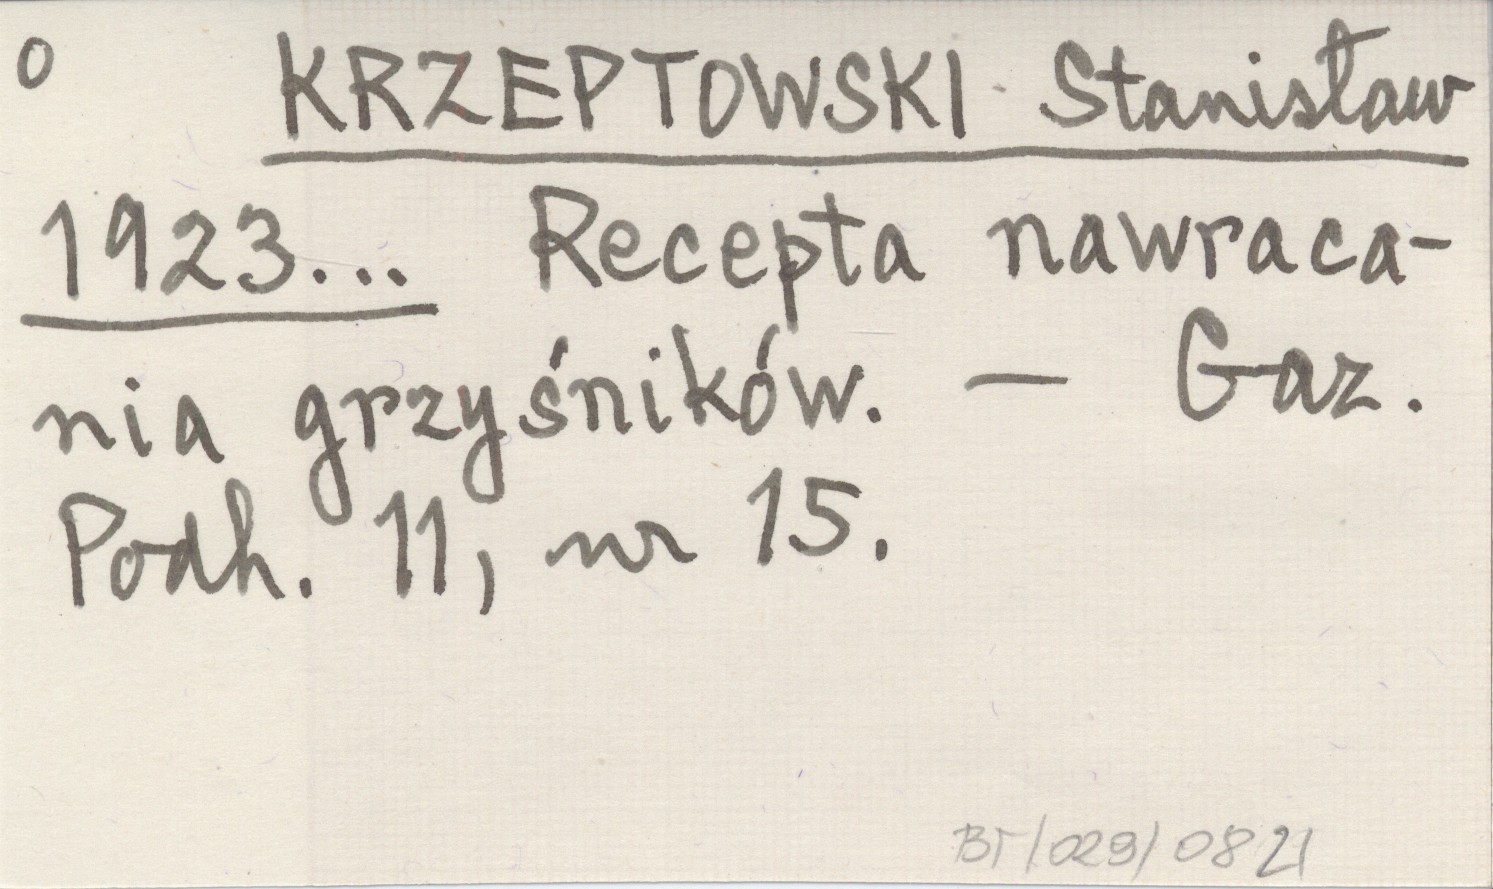 o KRZEPTOWSKI Stanisław
1923... Recepta nawraca-
nia grzyśników. — Gaz.
Podh. 11, nr 15.
BT/029/0821